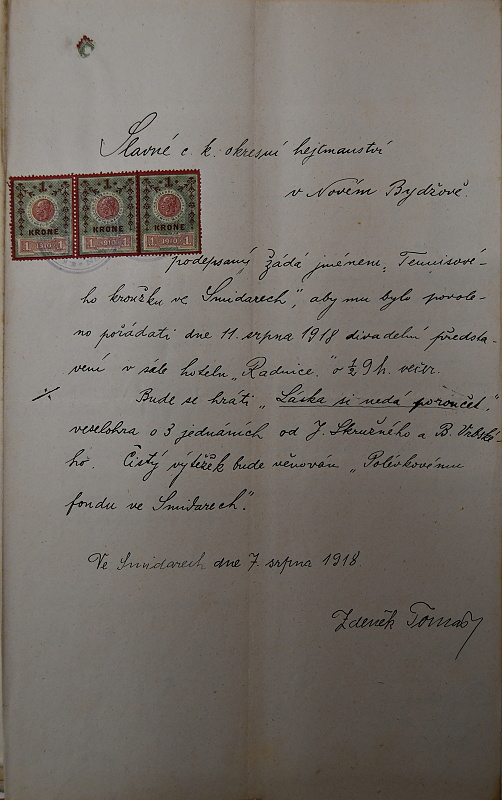 Slavné c. k. okresní hejtmanství
v Novém Bydžově.
1 1 1
KRONE KRONE KRONE
1 1910 1 1 1910 1 1 1910 1
podepsaný žádá jménem „Tennisové-
ho kroužku ve Smidarech", aby mu bylo povole-
no pořádati dne 11. srpna 1918 divadelní předsta-
vení v sále hotelu „Radnice" o ½9 h. večer.
Bude se hráti „Láska si nedá poroučet",
veselohra o 3 jednáních od J. Skružného a B. Vrbské-
ho. Čistý výtěžek bude věnován „Polévkovému
fondu ve Smidarech".
Ve Smidarech dne 7. srpna 1918.
Zdeněk Tomáš